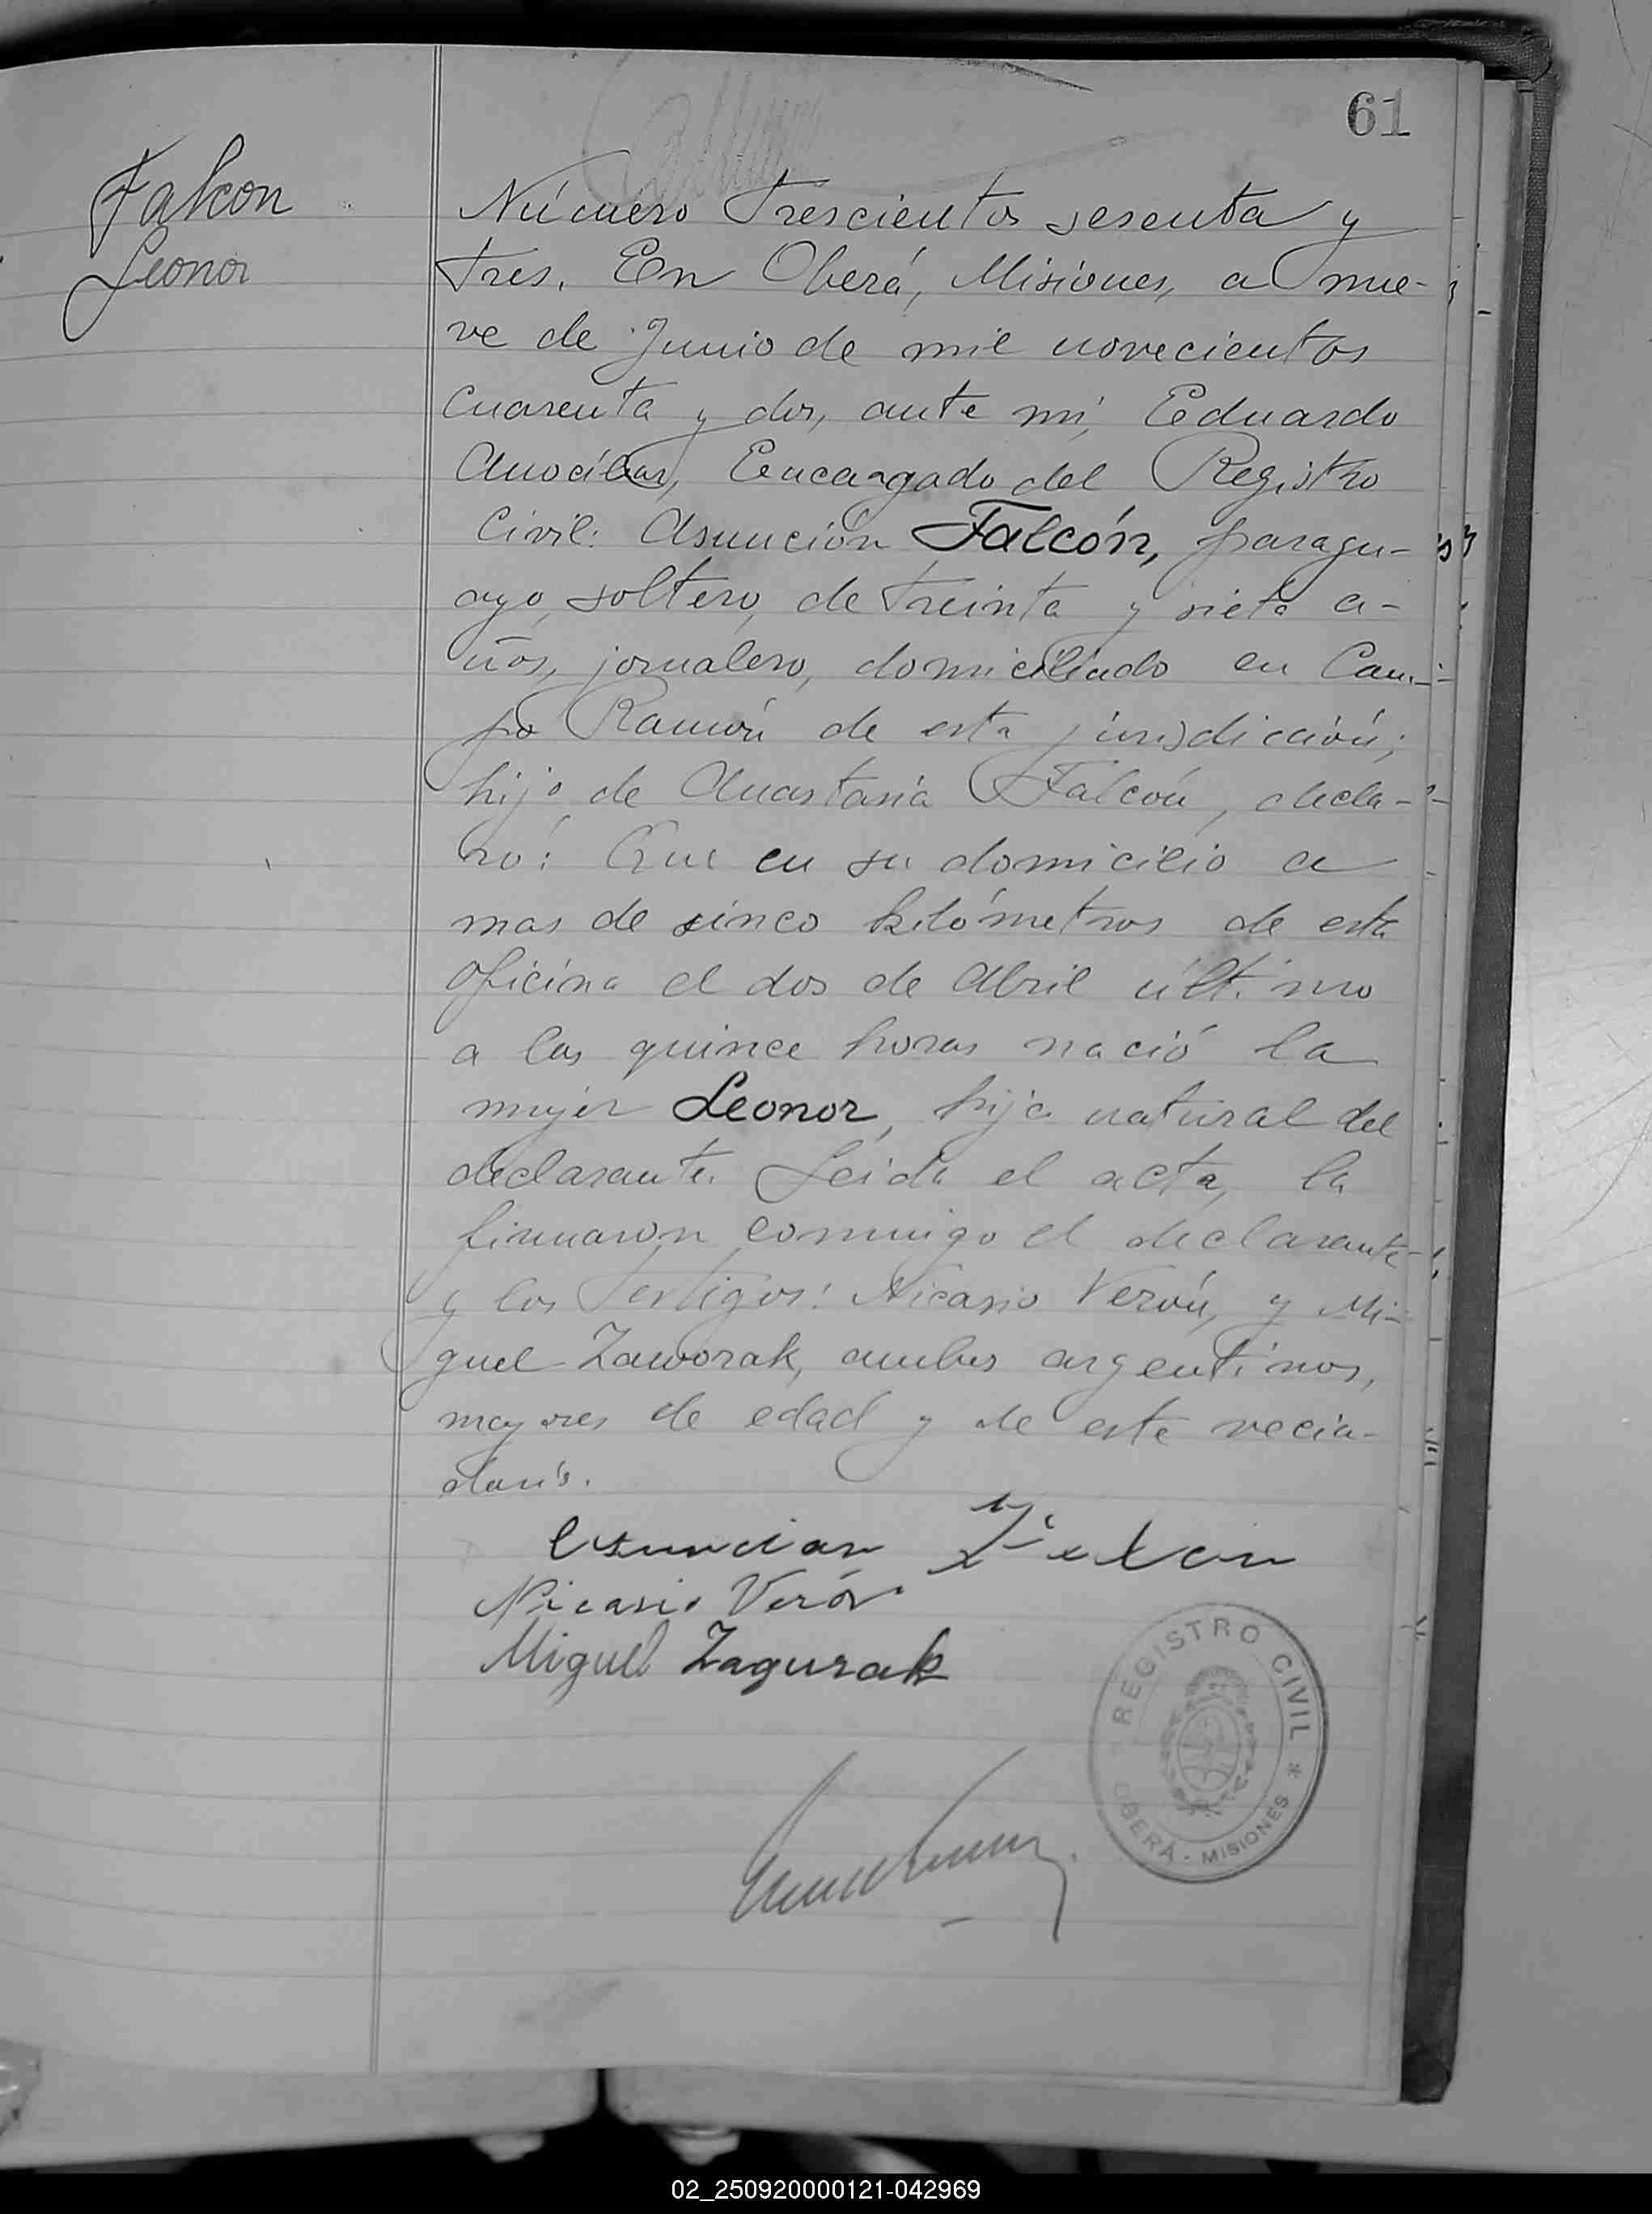 61
Falcon
Leonor
Número Trescientos sesenta y
tres. En Oberá, Misiones, a nue-
ve de Junio de mil novecientos
cuarenta y dos, ante mí, Eduardo
Anocíbar, Encargado del Registro
Civil: Asunción Falcón, paragu-
ayo, soltero, de treinta y siete a-
ños, jornalero, domiciliado en Cam-
po Ramón de esta jurisdicción;
hijo de Anastasia Falcón, decla-
ró: Que en su domicilio a
mas de cinco kilómetros de esta
oficina el dos de Abril último
a las quince horas nació la
mujer Leonor, hija natural del
declarante. Leida el acta, la
firmaron conmigo el declarante
y los testigos: Nicasio Verón, y Mi-
guel Zaworak, ambos argentinos,
mayores de edad y de este vecin-
dario.
Asuncion Falcon
Nicasio Verón
Miguel Zagurak
REGISTRO CIVIL
OBERÁ - MISIONES
02_250920000121-042969